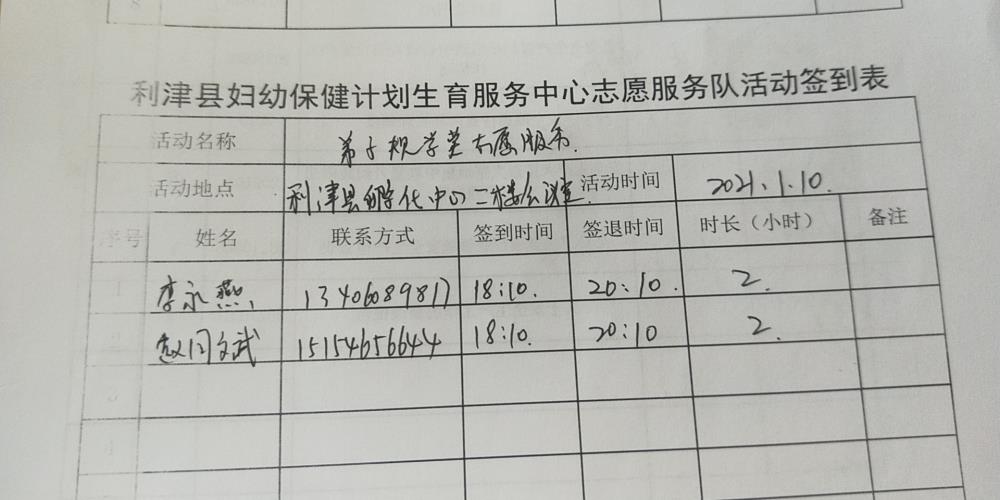 8
利津县妇幼保健计划生育服务中心志愿服务队活动签到表
活动名称 弟子规学堂志愿服务
活动地点 利津县孵化中心二楼会议室 活动时间 2021.1.10.
序号 姓名 联系方式 签到时间 签退时间 时长（小时） 备注
1 李永燕 13406089817 18:10. 20:10. 2.
2 文武 15154656644 18:10. 20:10 2.
3
4